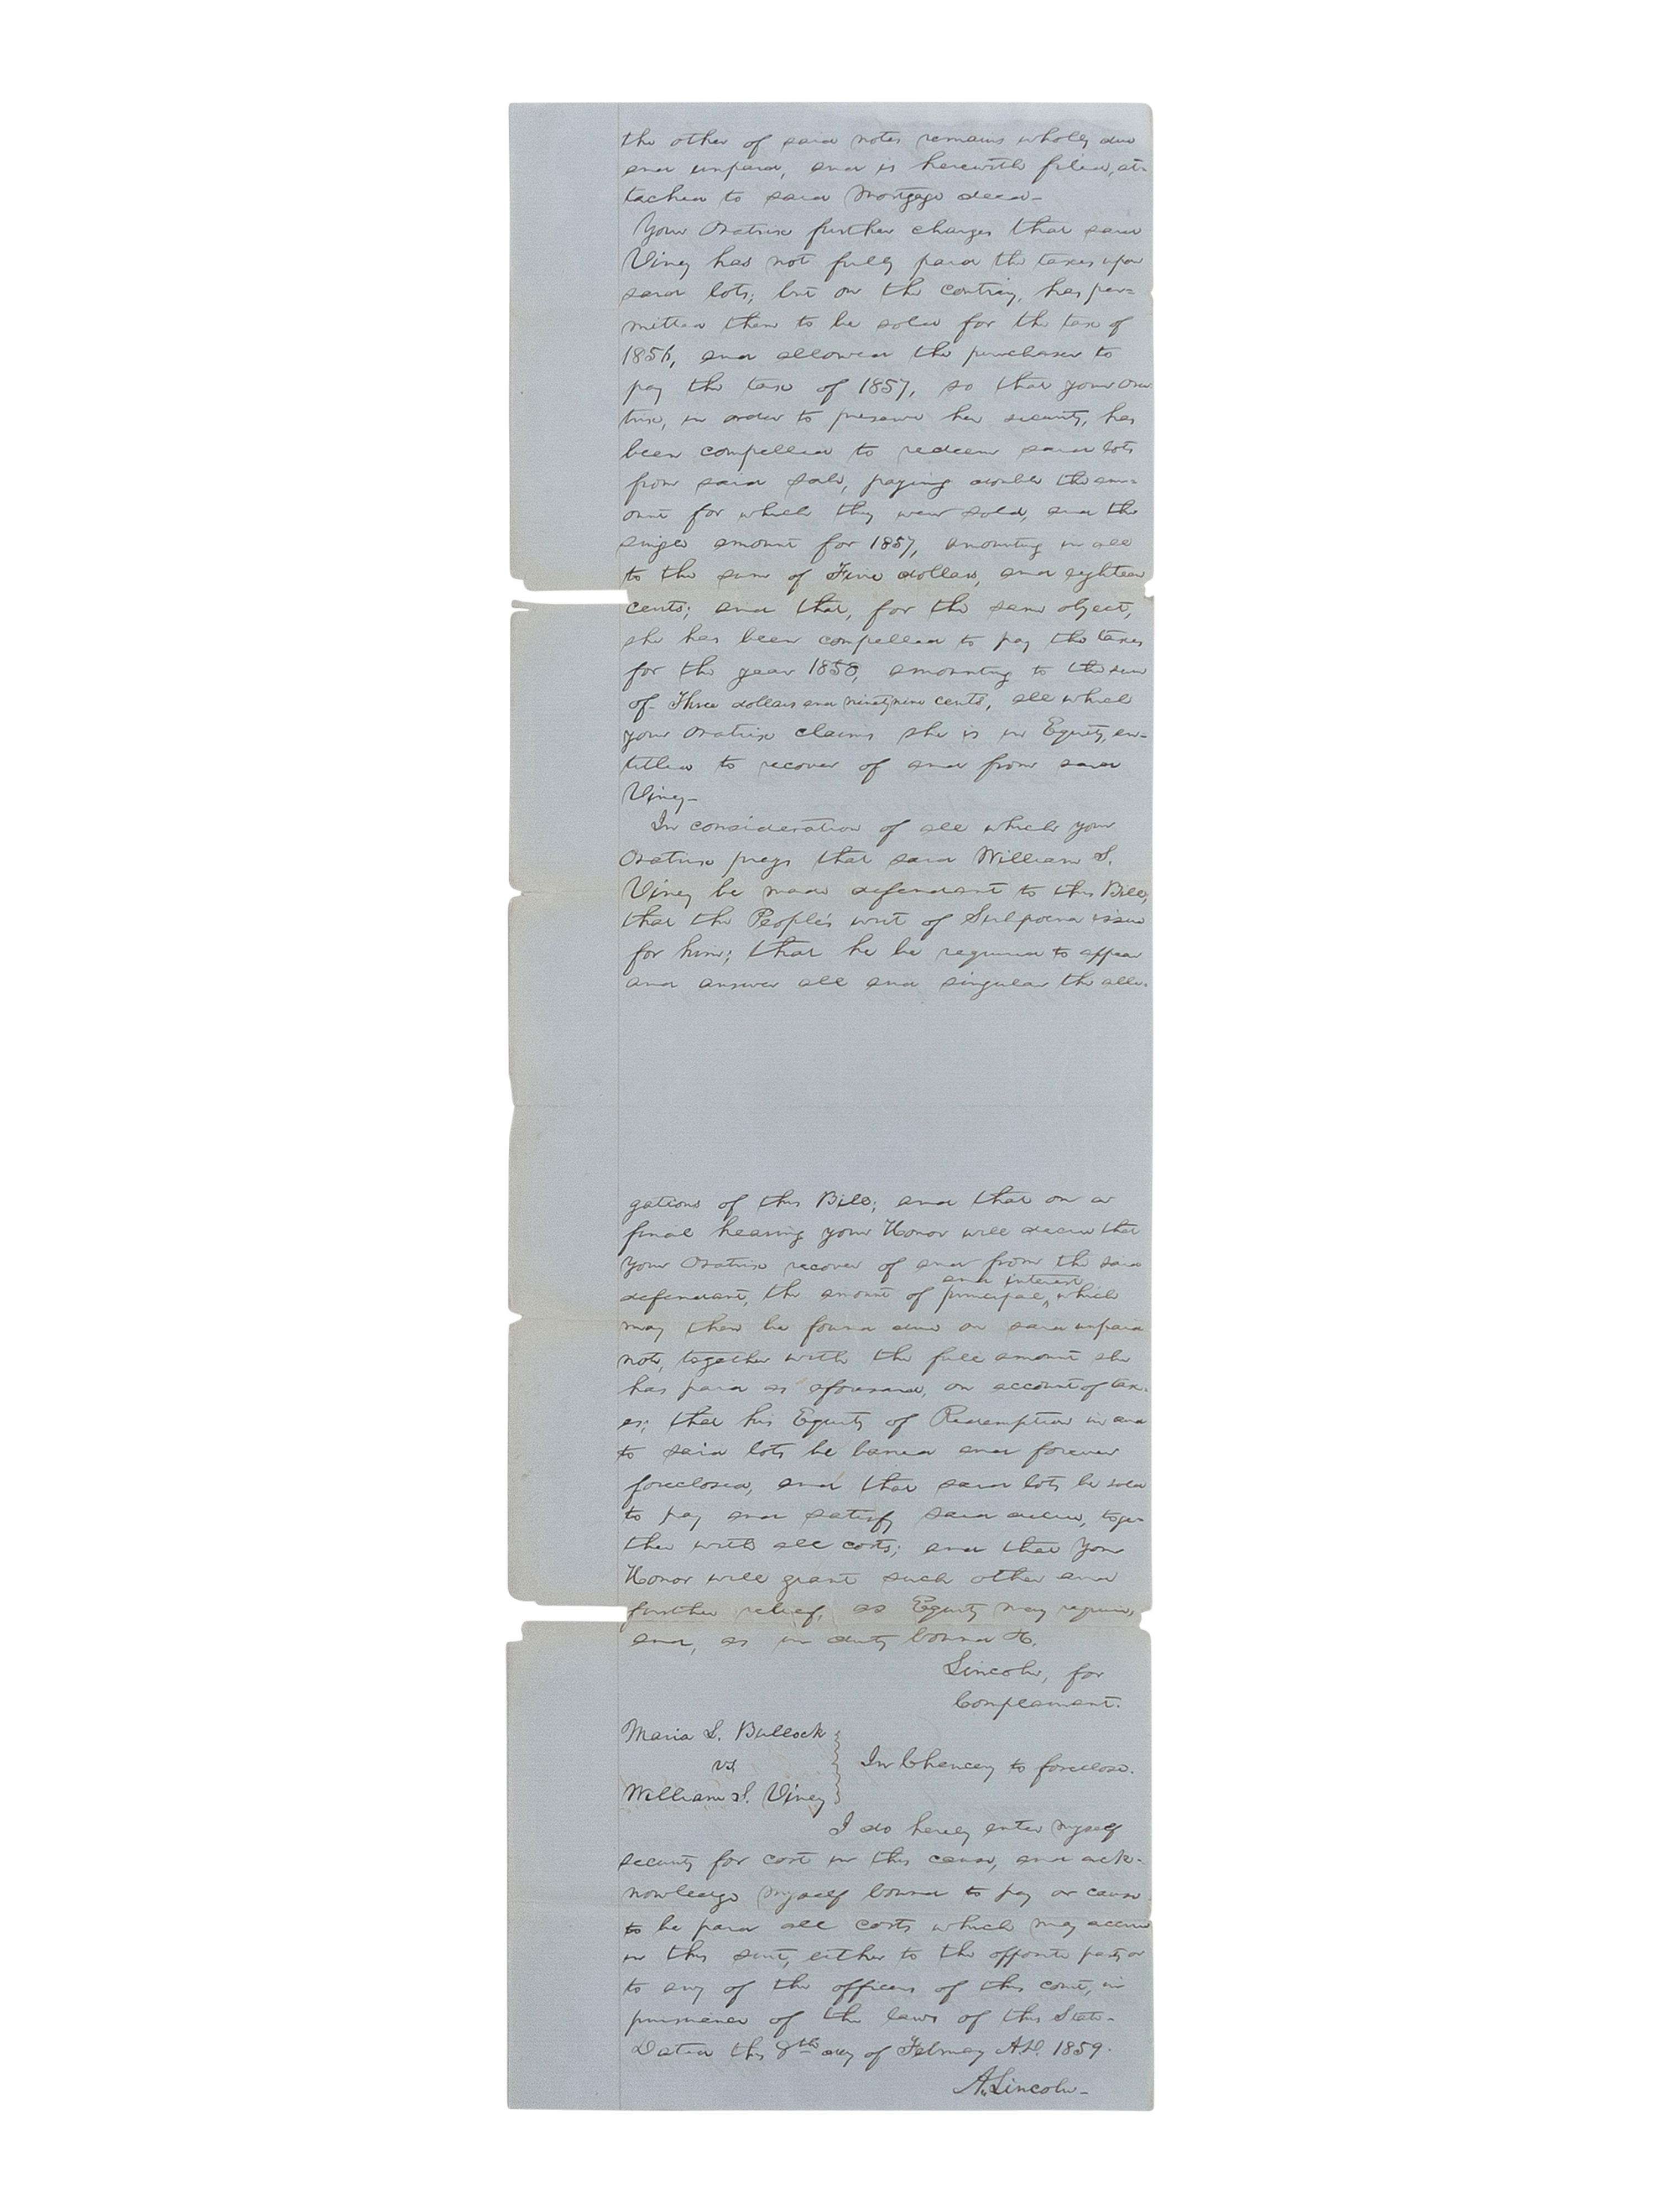 the other of said notes remains wholly due
and unpaid, and is herewith filed, at=
tached to said Mortgage deed—
Your Oratrix further charges that said
Viney has not fully paid the taxes upon
said lots; but on the contrary, has per=
mitted them to be sold for the tax of
1856, and allowed the purchaser to
pay the tax of 1857, so that your Ora
trix, in order to preserve her security, has
been compelled to redeem said lots
from said sale, paying double the am=
ount for which they were sold, and the
single amount for 1857, amounting in all
to the sum of Five dollars, and eighteen
cents; and that, for the same object,
she has been compelled to pay the taxes
for the year 1858, amounting to the sum
of Three dollars and ninetynine cents, all which
your Oratrix claims she is in Equity, en-
titled to recover of and from said
Viney—
In consideration of all which your
Oratrix prays that said William S.
Viney be made defendant to this Bill,
that the People's writ of Subpoena issue
for him; that he be required to appear
and answer all and singular the alle-
gations of this Bill; and that on a
final hearing your Honor will decree that
your Oratrix recover of and from the said
and interest
defendant, the amount of principal, which
may then be found due on said unpaid
note, together with the full amount she
has paid as aforesaid, on account of tax-
es; that his Equity of Redemption in and
to said lots be barred and forever
foreclosed, and that said lots be sold
to pay and satisfy said decree, toge-
ther with all costs; and that your
Honor will grant such other and
further relief, as Equity may require,
and, as in duty bound &c.
Lincoln, for
Complainant.
Maria L. Bullock
vs
William S. Viney
In Chancery to foreclose.
I do hereby enter myself
security for cost in this cause, and ack-
nowledge myself bound to pay or cause
to be paid all costs which may accrue
in this suit, either to the opposite party or
to any of the officers of this court, in
pursuance of the laws of this State.
Dated this 8th day of February A.D. 1859.
A. Lincoln—